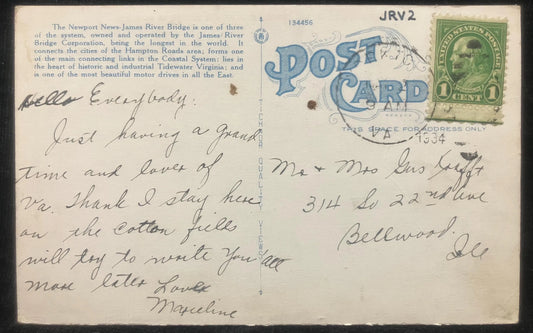 The Newport News-James River Bridge is one of three
of the system, owned and operated by the James River
Bridge Corporation, being the longest in the world. It
connects the cities of the Hampton Roads area; forms one
of the main connecting links in the Coastal System: lies in
the heart of historic and industrial Tidewater Virginia; and
is one of the most beautiful motor drives in all the East.
Hello Everybody:
Just having a grand
time and lover of
Va. Thank I stay here
on the cotton fills
will try to write You all
more later Love
134456
JRV2
POST CARD
THIS SPACE FOR ADDRESS ONLY
UNITED STATES POSTAGE
1 CENT 1
9 AM
1934
VA
Mr & Mrs Gus
314 So 22nd Ave
Bellwood.
Ill